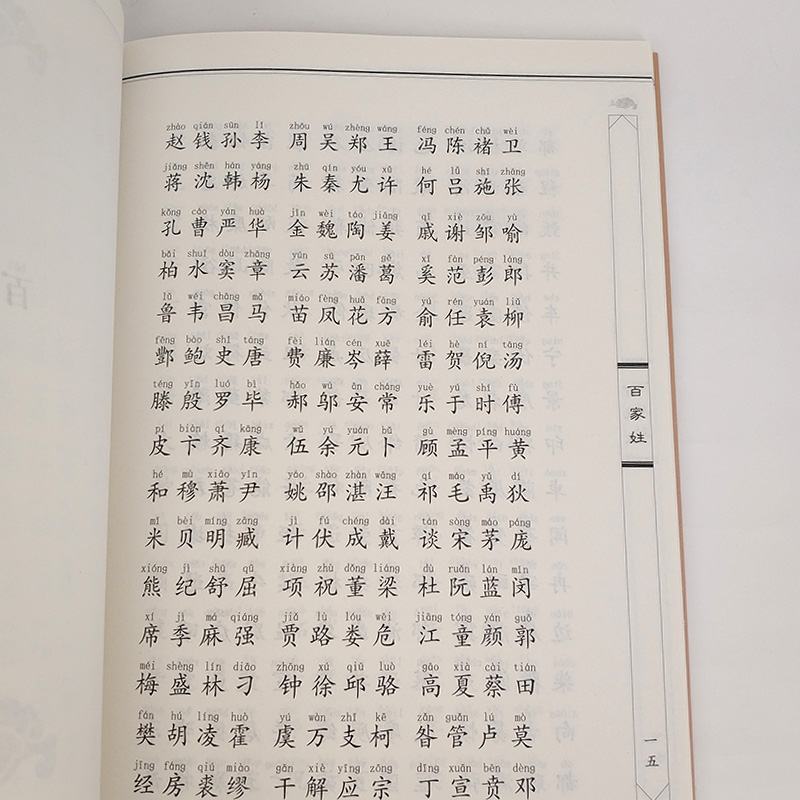 zhào qián sūn lǐ zhōu wú zhèng wáng féng chén chǔ wèi
赵钱孙李 周吴郑王 冯陈褚卫
jiǎng shěn hán yáng zhū qín yóu xǔ hé lǚ shī zhāng
蒋沈韩杨 朱秦尤许 何吕施张
kǒng cáo yán huà jīn wèi táo jiāng qī xiè zōu yù
孔曹严华 金魏陶姜 戚谢邹喻
bǎi shuǐ dòu zhāng yún sū pān gě xī fàn péng láng
柏水窦章 云苏潘葛 奚范彭郎
lǔ wéi chāng mǎ miáo fèng huā fāng yú rén yuán liǔ
鲁韦昌马 苗凤花方 俞任袁柳
fēng bào shǐ táng fèi lián cén xuē léi hè ní tāng
酆鲍史唐 费廉岑薛 雷贺倪汤
téng yīn luó bì hǎo wū ān cháng yuè yú shí fù
滕殷罗毕 郝邬安常 乐于时傅
pí biàn qí kāng wǔ yú yuán bǔ gù mèng píng huáng
皮卞齐康 伍余元卜 顾孟平黄
hé mù xiāo yǐn yáo shào zhàn wāng qí máo yǔ dí
和穆萧尹 姚邵湛汪 祁毛禹狄
mǐ bèi míng zāng jì fú chéng dài tán sòng máo páng
米贝明臧 计伏成戴 谈宋茅庞
xióng jì shū qū xiàng zhù dǒng liáng dù ruǎn lán mǐn
熊纪舒屈 项祝董梁 杜阮蓝闵
xí jì má qiáng jiǎ lù lóu wēi jiāng tóng yán guō
席季麻强 贾路娄危 江童颜郭
méi shèng lín diāo zhōng xú qiū luò gāo xià cài tián
梅盛林刁 钟徐邱骆 高夏蔡田
fán hú líng huò yú wàn zhī kē zǎn guǎn lú mò
樊胡凌霍 虞万支柯 昝管卢莫
jīng fáng qiú miào gān xiè yīng zōng dīng xuān bēn dèng
经房裘缪 干解应宗 丁宣贲邓
百家姓
一五